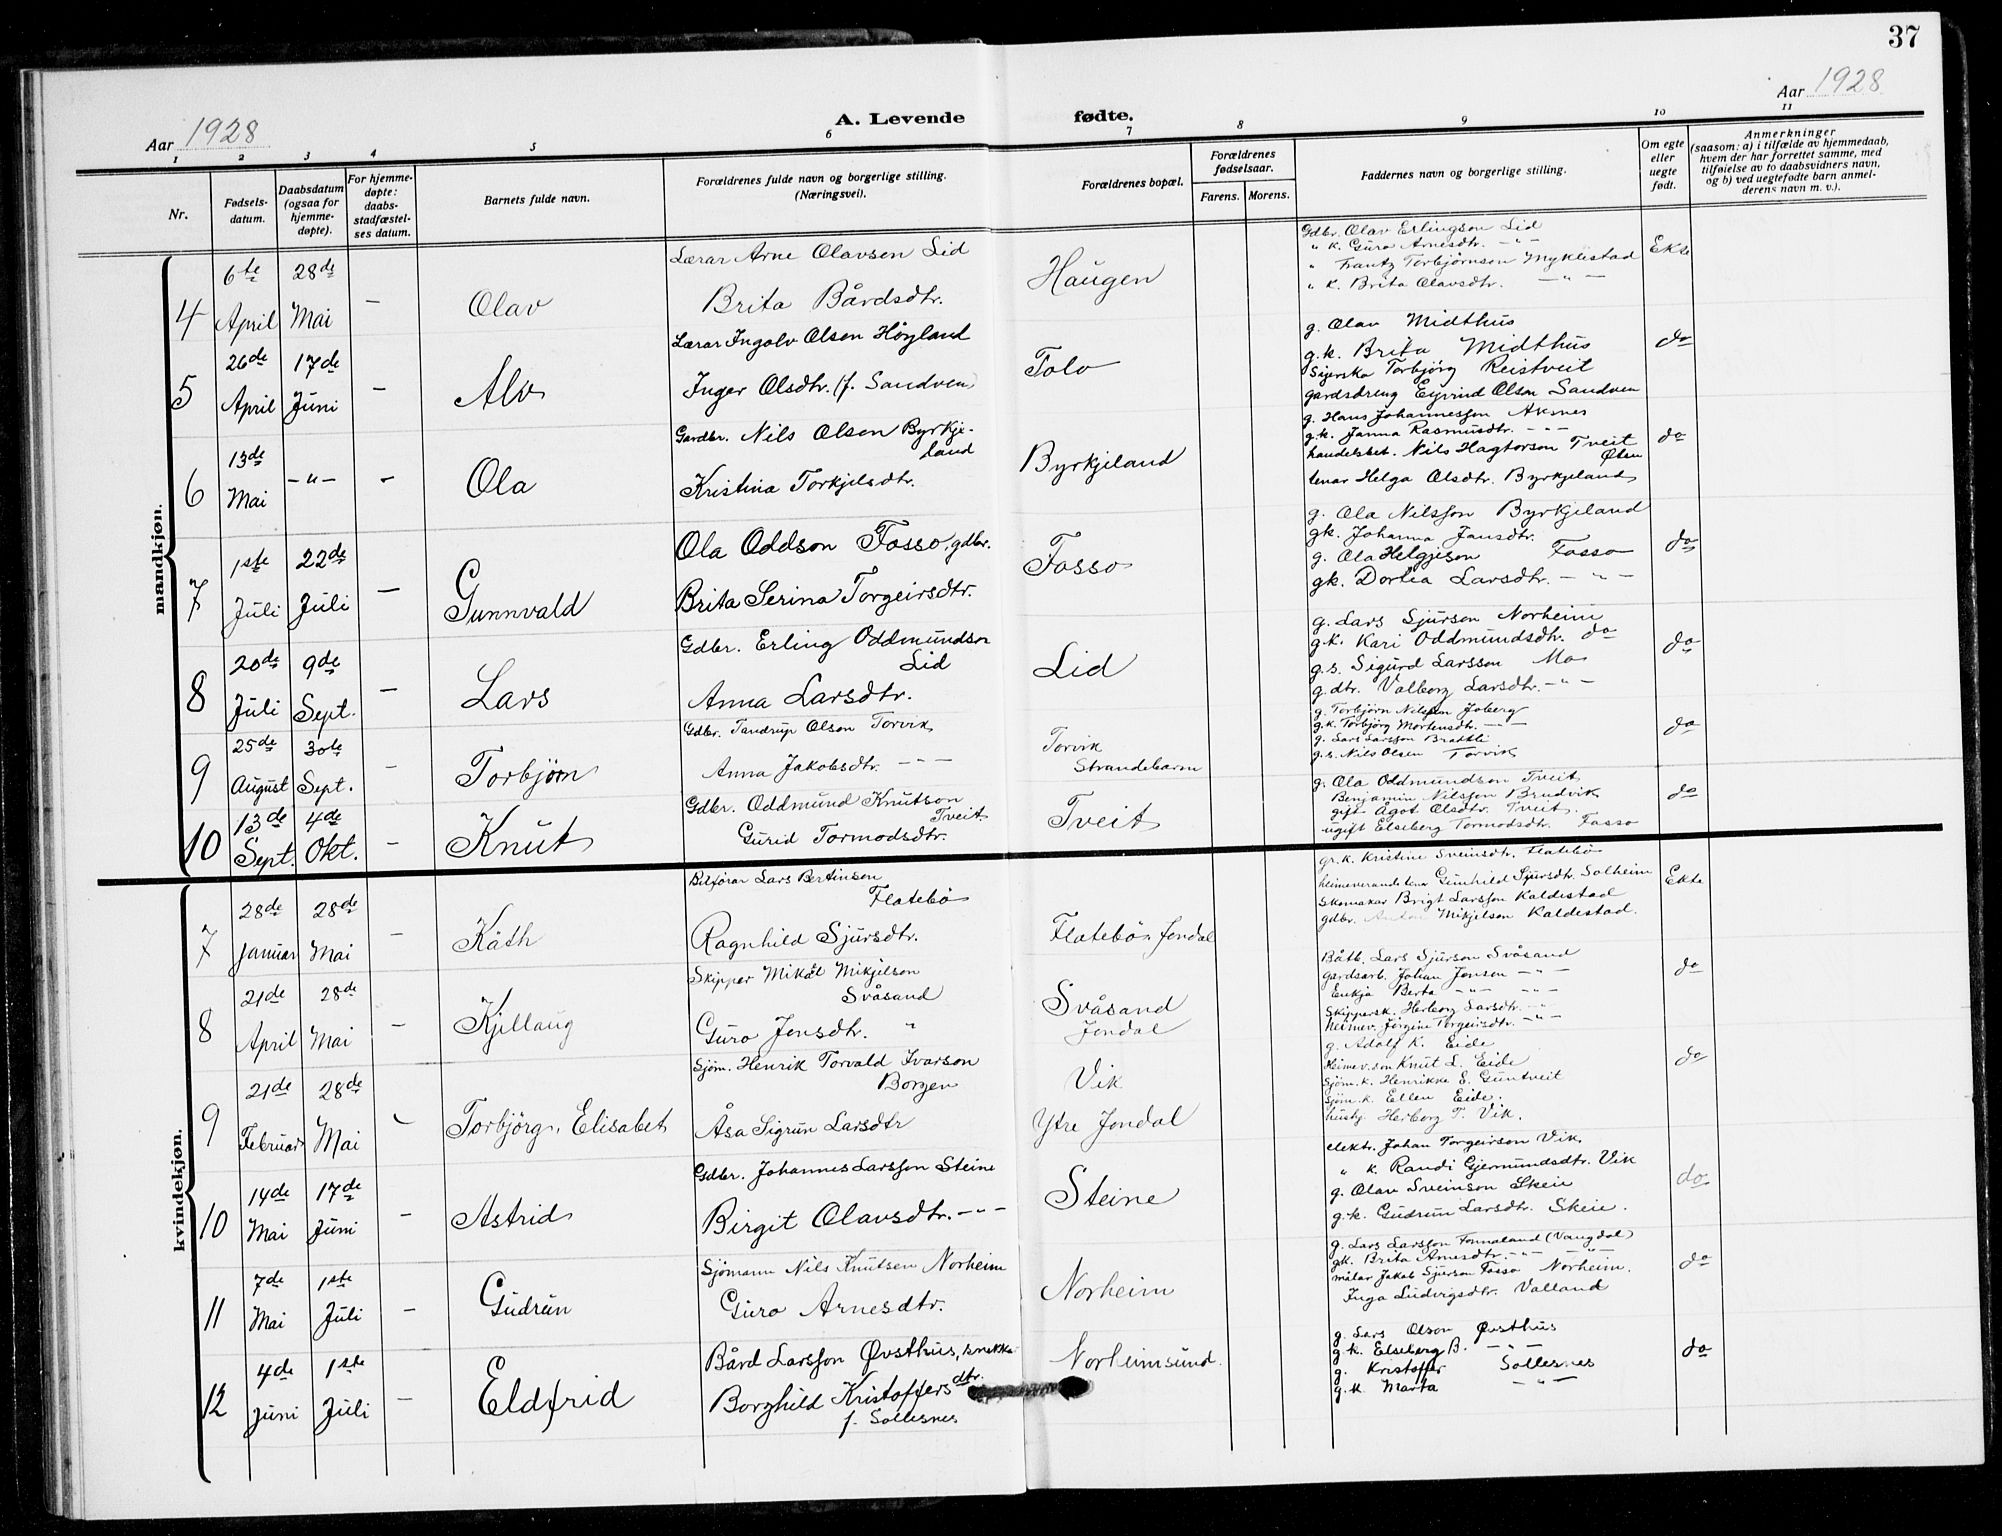 37
Aar 1928
A. Levende fødte.
Aar 1928
1 2 3 4 5 6 7 8 9 10 11
Nr.
Fødsels-
datum.
Daabsdatum
(ogsaa for
hjemme-
døpte).
For hjemme-
døpte:
daabs-
stadfæstel-
ses datum.
Barnets fulde navn.
Forældrenes fulde navn og borgerlige stilling.
(Næringsvei).
Forældrenes bopæl.
Forældrenes
fødselsaar.
Farens. Morens.
Faddernes navn og borgerlige stilling.
Om egte
eller
uegte
født.
Anmerkninger
(saasom: a) i tilfælde av hjemmedaab,
hvem der har forrettet samme, med
tilføielse av to daabsvidners navn,
og b) ved uegtefødte barn anmel-
derens navn m. v.).
mandkjøn.
4
6te April
28de Mai
–
Olav
Lærar Arne Olavsen Lid
Brita Bårdsdtr.
Haugen
Gdbr. Olav Erlingson Lid
" k. Guro Arnesdtr. – " –
" Frantz Torbjørnson Myklestad
" k. Brita Olavsdtr. – " –
Ekte
5
26de April
17de Juni
–
Alv
Lærar Ingolv Olsen Høyland
Inger Olsdtr. (f. Sandven)
Tolo
g. Olav Midthus
g.k. Brita Midthus
Torbjørg Reistveit
gardsdreng Eyvind Olson Sandven
do
6
13de Mai
– " –
–
Ola
Gardbr. Nils Olsen Byrkje-
land
Kristina Torkjelsdtr.
Byrkjeland
g. Hans Johannessen Aksnes
g.k. Janna Rasmusdtr. – " –
Nils Hagtorson Tveit
Ølen
tenar Helga Olsdtr. Byrkjeland
do
7
1ste Juli
22de Juli
–
Gunnvald
Ola Oddson Fosso, gdbr.
Brita Serina Torgeirsdtr.
Fosso
g. Ola Nilsson Byrkjeland
gk. Johanna Jansdtr.
g. Ola Helgjeson Fosso
gk. Dortea Larsdtr. – " –
do
8
20de Juli
9de Sept.
–
Lars
Gdbr. Erling Oddmundson
Lid
Anna Larsdtr.
Lid
g. Lars Sjurson Norheim
g.k. Kari Oddmundsdtr. do
g.s. Sigurd Larsson Mo
g.dtr. Valborg Larsdtr. – " –
do
9
25de August
30te Sept.
–
Torbjørn
Gdbr. Tandrup Olson Torvik
Anna Jakobsdtr. – " –
Torvik
Strandebarm
g. Torbjørn Nilsson Joberg
g.k. Torbjørg Mortensdtr. – " –
g. Lars Larsson Brattli
g.s. Nils Olsen Torvik
do
10
13de Sept.
4de Okt.
–
Knut
Gdbr. Oddmund Knutson
Tveit
Gurid Tormodsdtr.
Tveit
g. Ola Oddmundson Tveit
Benjamin Nilsson Brudvik
gift Ågot Olsdtr. Tveit.
ugift Elseberg Tormodsdtr. Fosso
do
kvindekjøn.
7
28de Januar
28de Mai
–
Käth
Bilførar Lars Bertinson
Flatebö
Ragnhild Sjursdtr.
Flatebö Jondal
gr.k. Kristine Sveinsdtr. Flatebö
heimeverande tenar Gunhild Sjursdtr. Solheim
Skomakar Brigt Larsson Kaldestad
gdbr. Mikjelson Kaldestad.
Ekte
8
21de April
28de Mai
–
Kjellaug
Skipper Mikal Mikjelson
Svåsand
Guro Jonsdtr. "
Svåsand
Jondal
Båtb. Lars Sjurson Svåsand
gardsarb. Johan Jonson – " –
Enkja Berta – " – – " –
Skippersk. Herborg Larsdtr. – " –
heimev. Jörgine Torgeirsdtr. – " –
do
9
21de Februar
28de Mai
–
Torbjörg Elisabet
Sjöm. Henrik Torvald Ivarson
Borgen
Åsa Sigrun Larsdtr
Vik
Ytre Jondal
g. Adolf K. Eide
Heimev. son Knut L. Eide
Sjöm.k. Henrikke E. Guntveit
Sjöm.k. Ellen Eide.
hushj. Herborg T. Vik.
do
10
14de Mai
17de Juni
–
Astrid
Gdbr. Johannes Larsson Steine
Birgit Olavsdtr. – " –
Steine
elektr. Johan Torgeirson Vik.
" k. Randi Gjermundsdtr. Vik
g. Olav Sveinson Skeie
g.k. Gudrun Larsdtr. Skeie.
do
11
7de Mai
1ste Juli
–
Gudrun
Sjömann Nils Knutsen Norheim
Guro Arnesdtr.
Norheim
g. Lars Larsson Tonnaland (Vangdal)
gk. Brita Arnesdtr. – " – – " –
målar Jakob Sjurson Fosso Norheim.
Inga Ludvigsdtr. Valland
do
12
4de Juni
1ste Juli
–
Eldfrid
Bård Larsson Øvsthus, snekker
Borghild Kristoffersdtr.
f. Sollesnes
Norheimsund.
g. Lars Olson Øvsthus
g.k. Elseberg B. – " –
g. Kristoffer Sollesnes
g.k. Marta – " –
do